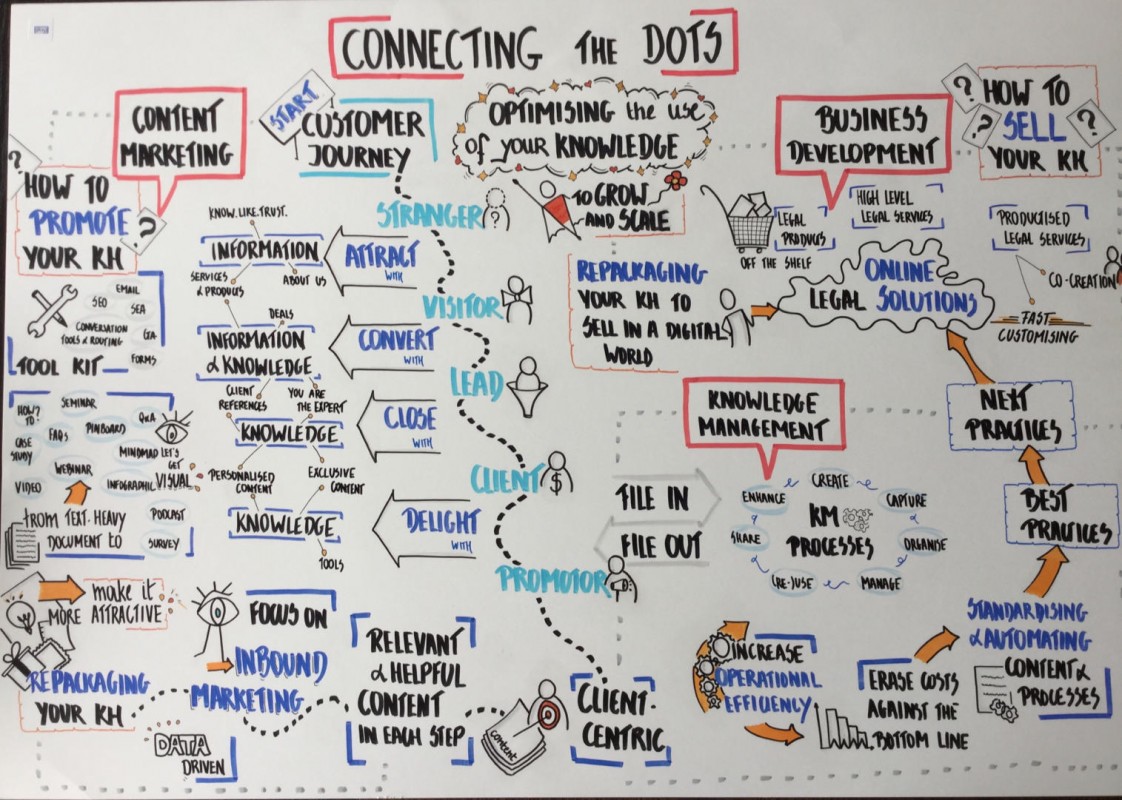 CONNECTING THE DOTS
CONTENT
MARKETING
START
CUSTOMER
JOURNEY
OPTIMISING the use
of your KNOWLEDGE
TO GROW
AND SCALE
BUSINESS
DEVELOPMENT
?
HOW TO
SELL
YOUR KH
?
?
?
HOW TO
PROMOTE
YOUR KH
?
EMAIL
SEO
SEA
CONVERSATION
TOOLS & ROUTING
GA
FORMS
TOOL KIT
HOW?
TO:
SEMINAR
Q&A
PINBOARD
FAQs
CASE
STUDY
MINDMAP
LET'S
GET
VISUAL
WEBINAR
INFOGRAPHIC
VIDEO
PODCAST
FROM TEXT-HEAVY
DOCUMENT TO
SURVEY
make it
MORE ATTRACTIVE
REPACKAGING
YOUR KH
DATA
DRIVEN
FOCUS ON
INBOUND
MARKETING
RELEVANT
& HELPFUL
CONTENT
IN EACH STEP
content
CLIENT-
CENTRIC
STRANGER
?
VISITOR
LEAD
CLIENT
$
PROMOTOR
ATTRACT
WITH
CONVERT
WITH
CLOSE
WITH
DELIGHT
WITH
KNOW. LIKE. TRUST.
INFORMATION
SERVICES
& PRODUCTS
ABOUT US
DEALS
INFORMATION
& KNOWLEDGE
CLIENT
REFERENCES
YOU ARE
THE EXPERT
KNOWLEDGE
PERSONALISED
CONTENT
EXCLUSIVE
CONTENT
KNOWLEDGE
TOOLS
REPACKAGING
YOUR KH TO
SELL IN A DIGITAL
WORLD
LEGAL
PRODUCTS
OFF THE SHELF
HIGH LEVEL
LEGAL SERVICES
PRODUCTISED
LEGAL SERVICES
CO-CREATION
FAST
CUSTOMISING
ONLINE
LEGAL SOLUTIONS
NEXT
PRACTICES
BEST
PRACTICES
STANDARDISING
& AUTOMATING
CONTENT &
PROCESSES
KNOWLEDGE
MANAGEMENT
FILE IN
FILE OUT
KM
PROCESSES
CREATE
CAPTURE
ORGANISE
MANAGE
(RE-)USE
SHARE
ENHANCE
INCREASE
OPERATIONAL
EFFICIENCY
ERASE COSTS
AGAINST THE
BOTTOM LINE